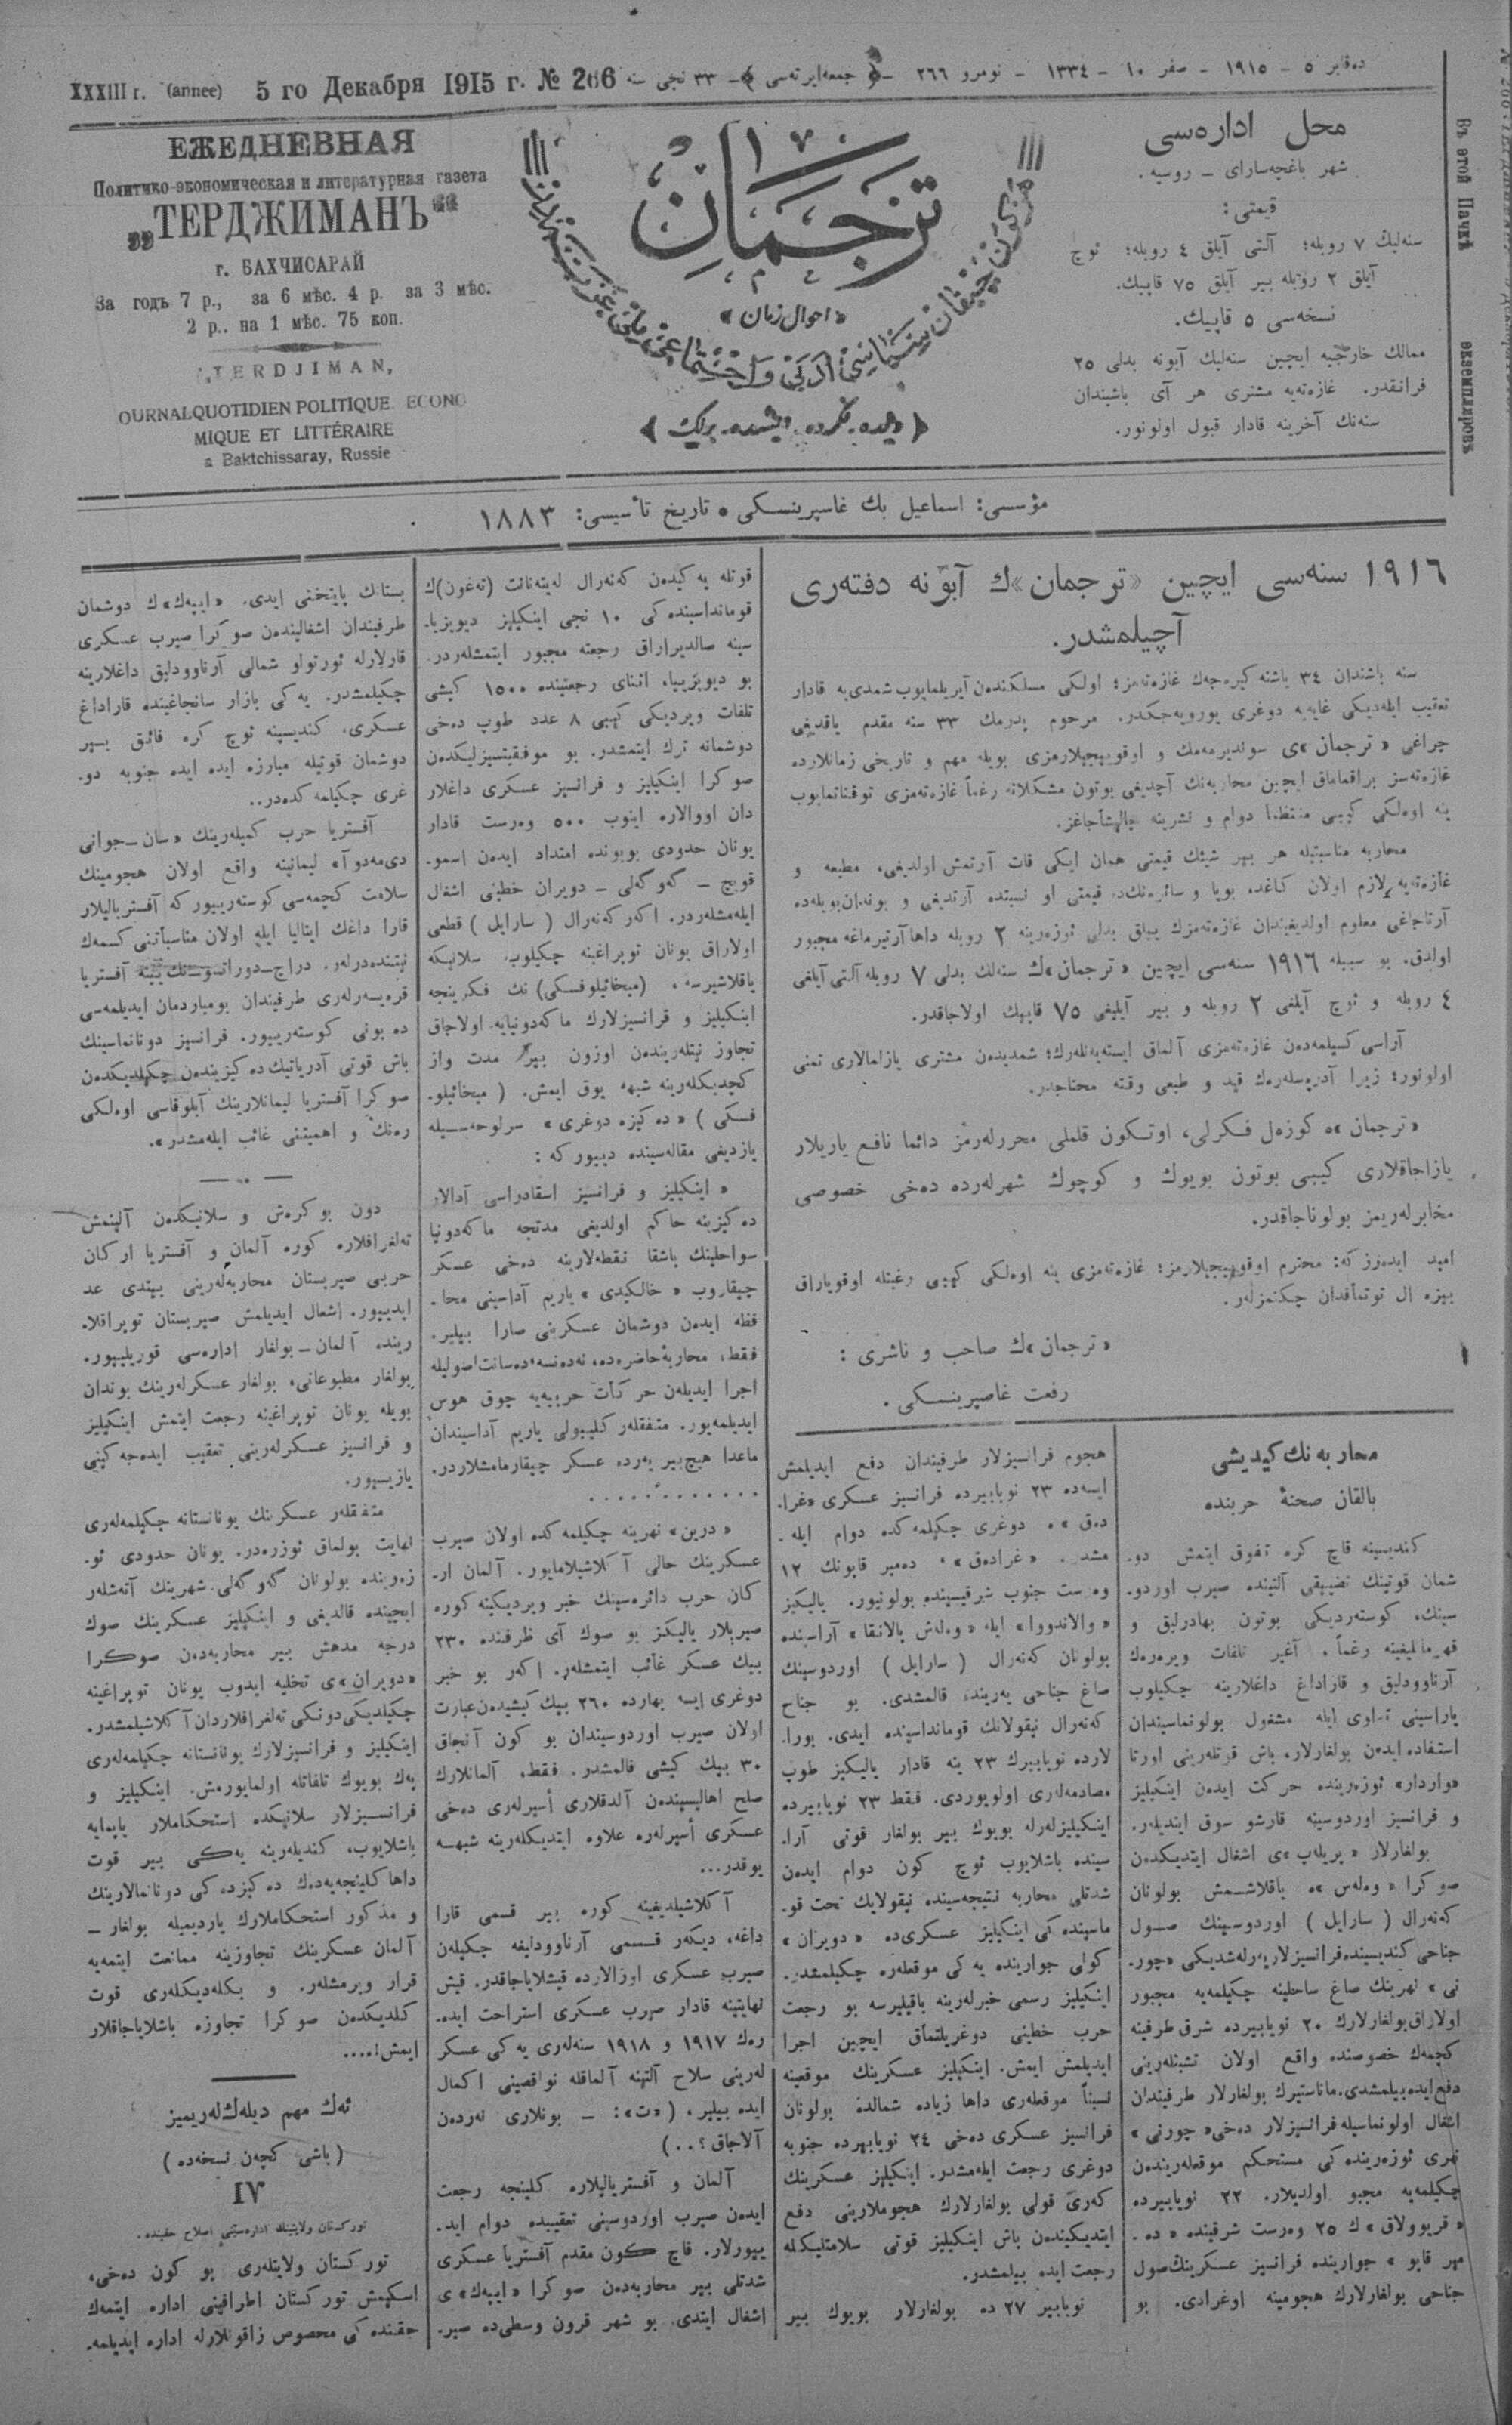 XXXIII г. (annee) 5 го Декабря 1915 г. № 266
دەقابر ٥ – ١٩١٥ – صفر ١٠ – ١٣٣٤ – نومرو ٢٦٦ – ﴿ جمعه‌ایرته‌سی ﴾ – ٣٣ نجی سنه
ЕЖЕДНЕВНАЯ
Политико-экономическая и литературная газета
„ТЕРДЖИМАНЪ“
г. БАХЧИСАРАЙ
За годъ 7 р., за 6 мѣс. 4 р. за 3 мѣс.
2 р.. на 1 мѣс. 75 коп.
„TERDJIMAN„
OURNALQUOTIDIEN POLITIQUE ECONO
MIQUE ET LITTÉRAIRE
a Baktchissaray, Russie
ترجمان
«احوال زمان»
﴿ دلده، فكرده، ايشده، برلك ﴾
محل اداره‌سی
شهر باغچه‌سارای – روسیه.
قیمتی:
سنه‌لیك ٧ روبله؛ آلتی آیلق ٤ روبله؛ ئوچ
آیلق ٢ روبله بیر آیلق ٧٥ قاپیك.
نسخه‌سی ٥ قاپیك.
ممالك خارجیه ایچین سنه‌لیك آبونه بدلی ٢٥
فرانقدر. غازه‌ته‌یه مشتری هر آی باشندان
سنه‌نك آخرینه قادار قبول اولونور.
Въ этой Пачкѣ
экземпляровъ
مؤسسی: اسماعیل بك غاسپرینسكی • تاریخ تأسیسی: ١٨٨٣
١٩١٦ سنه‌سی ایچین «ترجمان»ك آبونه دفته‌ری
آچیلمشدر.
سنه باشندان ٣٤ یاشنه كیره‌جه‌ك غازه‌ته‌مز؛ اولكی مسلكندن آیریلمایوب شمدی‌یه قادار
تعقیب ایله‌دیكی غایه‌یه دوغری یورویه‌جكدر. مرحوم پدرمك ٣٣ سنه مقدم یاقدیغی
چراغی «ترجمان»ی سولدیرمه‌مك و اوقویجیلارمزی بویله مهم و تاریخی زمانلارده
غازه‌ته‌سز براقماماق ایچین محاربه‌نك آچدیغی بوتون مشكلاته رغماً غازه‌ته‌مزی توقتاتمایوب
ینه اوه‌لكی كیبی منتظما دوام و نشرینه چالیشاجاغز.
محاربه مناسبتیله هر بیر شیئك قیمتی همان ایكی قات آرتمش اولدیغی، مطبعه و
غازه‌ته‌یه لازم اولان كاغد، بویا و سائره‌نكده قیمتی او نسبتده آرتدیغی و بوندان بویله‌ده
آرتاجاغی معلوم اولدیغیندان غازه‌ته‌مزك ییلق بدلی ئوزه‌رینه ٢ روبله داها آرتیرماغه مجبور
اولدق. بو سببله ١٩١٦ سنه‌سی ایچین «ترجمان»ك سنه‌لك بدلی ٧ روبله آلتی آیلغی
٤ روبله و ئوچ آیلغی ٢ روبله و بیر آیلیغی ٧٥ قاپیك اولاجاقدر.
آراسی كسیلمه‌دن غازه‌ته‌مزی آلماق ایسته‌یه‌نله‌رك؛ شمدیدن مشتری یازلمالاری تمنی
اولونور؛ زیرا آدریسله‌رك قید و طبعی وقته محتاجدر.
«ترجمان»ه كوزه‌ل فكرلی، اوتكون قلملی محررله‌رمز دائما نافع یازیلار
یازاجاقلاری كیبی بوتون بویوك و كوچوك شهرله‌رده ده‌خی خصوصی
مخابرله‌ریمز بولوناجاقدر.
امید ایده‌رز كه: محترم اوقویجیلارمز؛ غازه‌ته‌مزی ینه اوه‌لكی كیبی رغبتله اوقویاراق
بیزه ال توتماقدان چكنمزلر.
«ترجمان»ك صاحب و ناشری:
رفعت غاصپرینسكی.
محاربه‌نك كیدیشی
بالقان صحنۀ حربنده
كندیسینه قاچ كره تفوق ایتمش دو-
شمان قوتینك تضییقی آلتینده صیرب اوردو-
سینك، كوسته‌ردیكی بوتون بهادرلیق و
قهرمانلیغینه رغماً، آغیر تلفات ویره‌رك
آرناوودلیق و قاراداغ داغلارینه چكیلوب
یاراسینی تداوی ایله مشغول بولونماسیندان
استفاده ایده‌ن بولغارلار، باش قوتله‌رینی اورتا
«واردار» ئوزه‌رینده حركت ایده‌ن اینكیلیز
و فرانسیز اوردوسینه قارشو سوق ایتدیله‌ر.
بولغارلار «پریله‌پ»ی اشغال ایتدیكدن
صوكرا «وه‌له‌س»ه یاقلاشمش بولونان
كه‌نه‌رال (سارایل) اوردوسینك صول
جناحی كندیسینده فرانسیزلار یه‌رله‌شدیكی «چور-
نی» نهرینك صاغ ساحلینه چكیلمه‌یه مجبور
اولاراق بولغارلارك ٢٠ نویابیرده شرق طرفینه
كچمه‌ك خصوصنده واقع اولان تشبثله‌رینی
دفع ایده بیلمشدی. ماناستیرك بولغارلار طرفیندان
اشغال اولونماسیله فرانسیزلار ده‌خی «چورنی»
نهری ئوزه‌رینده‌كی مستحكم موقعله‌ریندن
چكیلمه‌یه مجبو اولدیلار. ٢٢ نویابیرده
«قریوولاق»ك ٢٥ وه‌رست شرقینده «ده-
میر قاپو» جوارینده فرانسیز عسكرینك صول
جناحی بولغارلارك هجومینه اوغرادی. بو
هجوم فرانسیزلار طرفیندان دفع ایدیلمش
ایسه‌ده ٢٣ نویابیرده فرانسیز عسكری «غرا-
ده‌ق»ه دوغری چكیلمه‌كده دوام ایله-
مشدر. «غراده‌ق»، ده‌میر قاپونك ١٢
وه‌رست جنوب شرقیسینده بولونیور. یالیكیز
«والاندووا» ایله «وه‌له‌ش پالانقا» آراسینده
بولونان كه‌نه‌رال (سارایل) اوردوسینك
صاغ جناحی یه‌رینده قالمشدی. بو جناح
كه‌نه‌رال نیقولانك قومانداسینده ایدی. بورا-
لارده نویابیرك ٢٣ ینه قادار یالیكیز طوپ
مصادمه‌لری اولویوردی. فقط ٢٣ نویابیرده
اینكیلیزله‌رله بویوك بیر بولغار قوتی آرا-
سینده باشلایوب ئوچ كون دوام ایده‌ن
شدتلی محاربه نتیجه‌سینده نیقولایك تحت قو-
ماسینده‌كی اینكیلیز عسكری‌ده «دویران»
كولی جوارینده یه‌كی موقعله‌ره چكیلمشدر.
اینكیلیز رسمی خبرله‌رینه باقیلیرسه بو رجعت
حرب خطینی دوغریلتماق ایچین اجرا
ایدیلمش ایمش. اینكیلیز عسكرینك موقعینه
نسبتاً موقعله‌ری داها زیاده شمالده بولونان
فرانسیز عسكری ده‌خی ٢٤ نویابیرده جنوبه
دوغری رجعت ایله‌مشدر. اینكیلیز عسكرینك
كه‌ری قولی بولغارلارك هجوملارینی دفع
ایتدیكیندن باش اینكیلیز قوتی سلامتلیكله
رجعت ایده بیلمشدر.
نویابیر ٢٧ ده بولغارلار بویوك بیر
قوتله یه‌كیدن كه‌نه‌رال له‌یته‌نانت (ته‌غون)ك
قومانداسینده‌كی ١٠ نجی اینكیلیز دیویزیا-
سینه صالدیراراق رجعته مجبور ایتمشله‌ردر.
بو دیویزییا، اثنای رجعتینده ١٥٠٠ كیشی
تلفات ویردیكی كیبی ٨ عدد طوپ ده‌خی
دوشمانه ترك ایتمشدر. بو موفقیتسزلیكدن
صوكرا اینكیلیز و فرانسیز عسكری داغلار
دان اووالاره اینوب ٥٠٠ وه‌رست قادار
یونان حدودی بویونده امتداد ایده‌ن اسمو-
قویچ – گه‌وگه‌لی – دویران خطینی اشغال
ایله‌مشله‌ردر. اكر كه‌نه‌رال (سارایل) قطعی
اولاراق یونان توپراغینه چكیلوب سلانیكه
یاقلاشیرسه، (میخائیلوفسكی) نك فكرینجه
اینكیلیز و فرانسیزلارك ماكه‌دونیایه اولاجاق
تجاوز نیتله‌ریندن اوزون بیر مدت واز
كچدیكله‌رینه شبهه یوق ایمش. (میخائیلو-
فسكی) «ده‌كیزه دوغری» سرلوحه‌سیله
یازدیغی مقاله‌سینده دیییور كه:
«اینكیلیز و فرانسیز اسقادراسی آدالار
ده‌كیزینه حاكم اولدیغی مدتجه ماكه‌دونیا
سواحلینك باشقا نقطه‌لارینه ده‌خی عسكر
چیقاروب «خالكیدی» یاریم آداسینی محا-
فظه ایده‌ن دوشمان عسكرینی صارا بیلیر.
فقط، محاربۀ حاضره‌ده، نه‌دنسه ده‌سانت اصولیله
اجرا ایدیله‌ن حركات حربیه‌یه چوق هوس
ایدیلمه‌یور. متفقله‌ر كلیبولی یاریم آداسیندان
ماعدا هیچ بیر یه‌رده عسكر چیقارمامشلاردر.
. . . . . . . . . . . . .
«درین» نهرینه چكیلمه‌كده اولان صیرب
عسكرینك حالی آكلاشیلامایور. آلمان ار-
كان حرب دائره‌سینك خبر ویردیكینه كوره
صیربلار یالیكز بو صوك آی ظرفنده ٢٣٠
بیك عسكر غائب ایتمشله‌ر. اكر بو خبر
دوغری ایسه بهارده ٢٦٠ بیك كیشیدن عبارت
اولان صیرب اوردوسیندان بو كون آنجاق
٣٠ بیك كیشی قالمشدر. فقط، آلمانلارك
صلح اهالیسیندن آلدقلاری أسیرله‌ری ده‌خی
عسكری أسیرله‌ره علاوه ایتدیكله‌رینه شبهه
یوقدر...
آكلاشیلدیغینه كوره بیر قسمی قارا
داغه، دیكه‌ر قسمی آرناوودلیغه چكیله‌ن
صیرب عسكری اورالارده قیشلایاجاقدر. قیش
نهایتینه قادار صیرب عسكری استراحت ایده-
ره‌ك ١٩١٧ و ١٩١٨ سنه‌له‌ری یه‌كی عسكر
له‌رینی سلاح آلتینه آلماقله نواقصینی اكمال
ایده بیلیر. («ت»: – بونلاری نه‌ردن
آلاجاق؟..)
آلمان و آفستریالیلاره كلینجه رجعت
ایده‌ن صیرب اوردوسینی تعقیبده دوام اید-
ییورلار. قاچ كون مقدم آفستریا عسكری
شدتلی بیر محاربه‌دن صوكرا «ایپه‌ك»ی
اشغال ایتدی. بو شهر قرون وسطی‌ده صیر-
بستانك پایتختی ایدی. «ایپه‌ك»ك دوشمان
طرفیندان اشغالیندن صوكرا صیرب عسكری
قارلارله ئورتولو شمالی آرناوودلیق داغلارینه
چكیلمشدر. یه‌كی بازار سانجاغینده قاراداغ
عسكری، كندیسینه ئوچ كره فائق بیر
دوشمان قوتیله مبارزه ایده ایده جنوبه دو-
غری چكیلمه‌كده‌در..
آفستریا حرب كمیله‌رینك «سان-جوانی
دی‌مه‌دوآ» لیمانینه واقع اولان هجومینك
سلامت كچمه‌سی كوسته‌رییور كه آفستریالیلار
قارا داغك ایتالیا ایله اولان مناسباتنی كسمه‌ك
نیتنده‌درله‌ر. دراچ-دوراتسو‌نك ینه آفستریا
قره‌یسه‌رله‌ری طرفیندان بومباردمان ایدیلمه‌سی
ده بونی كوسته‌رییور. فرانسیز دونانماسینك
باش قوتی آدریاتیك ده‌كیزیندن چكیلدیكدن
صوكرا آفستریا لیمانلارینك آبلوقاسی اوه‌لكی
ره‌نك و اهمیتنی غائب ایله‌مشدر».
دون بوكره‌ش و سلانیكدن آلینمش
ته‌لغرافلاره كوره آلمان و آفستریا اركان
حربی صیربستان محاربه‌له‌رینی بیتدی عد
ایدییور. اشغال ایدیلمش صیربستان توپراقلا-
رینده آلمان – بولغار اداره‌سی قوریلییور.
بولغار مطبوعاتی، بولغار عسكرله‌رینك بوندان
بویله یونان توپراغینه رجعت ایتمش اینكیلیز
و فرانسیز عسكرله‌رینی تعقیب ایده‌جه‌كینی
یازییور.
متفقله‌ر عسكرینك یونانستانه چكیلمه‌له‌ری
نهایت بولماق ئوزره‌در. یونان حدودی ئو-
زه‌رینده بولونان گه‌وگه‌لی شهرینك آتشله‌ر
ایچینده قالدیغی و اینكیلیز عسكرینك صوك
درجه مدهش بیر محاربه‌دن صوكرا
«دویران»ی تخلیه ایدوب یونان توپراغینه
چكیلدیكی دونكی ته‌لغرافلاردان آكلاشیلمشدر.
اینكیلیز و فرانسیزلارك یونانستانه چكیلمه‌له‌ری
پك بویوك تلفاتله اولمایورمش. اینكیلیز و
فرانسیزلار سلانیكده استحكاملار یاپمایه
باشلایوب، كندیله‌رینه یه‌كی بیر قوت
داها كلینجه‌یه‌دك ده‌كیزده‌كی دونانمالارینك
و مذكور استحكاملارك یاردیمیله بولغار –
آلمان عسكرینك تجاوزینه ممانعت ایتمه‌یه
قرار ویرمشله‌ر. و بكله‌دیكله‌ری قوت
كلدیكدن صوكرا تجاوزه باشلایاجاقلار
ایمش!....
ئه‌ك مهم دیله‌ك‌له‌ریمیز
(باشی كچه‌ن نسخه‌ده)
IV
توركستان ولایتینك اداره‌سینی اصلاح حقنده.
توركستان ولایتله‌ری بو كون ده‌خی،
اسكیمش توركستان اطرافینی اداره ایتمه‌ك
حقنده‌كی مخصوص زاقونلارله اداره ایدیلمه-